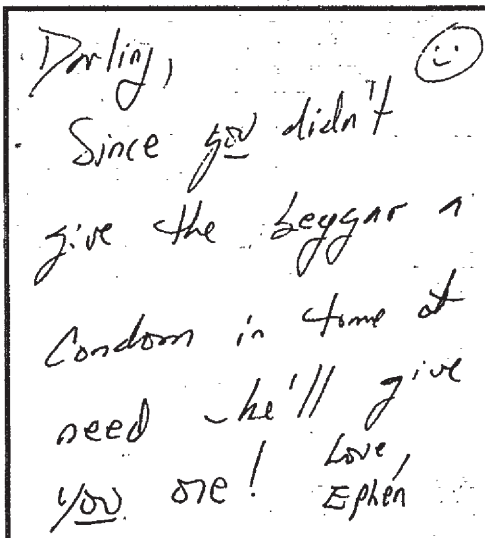 Darling,
Since you didn't
give the beggar a
Condom in time of
need - he'll give
you one! Love,
Ephen